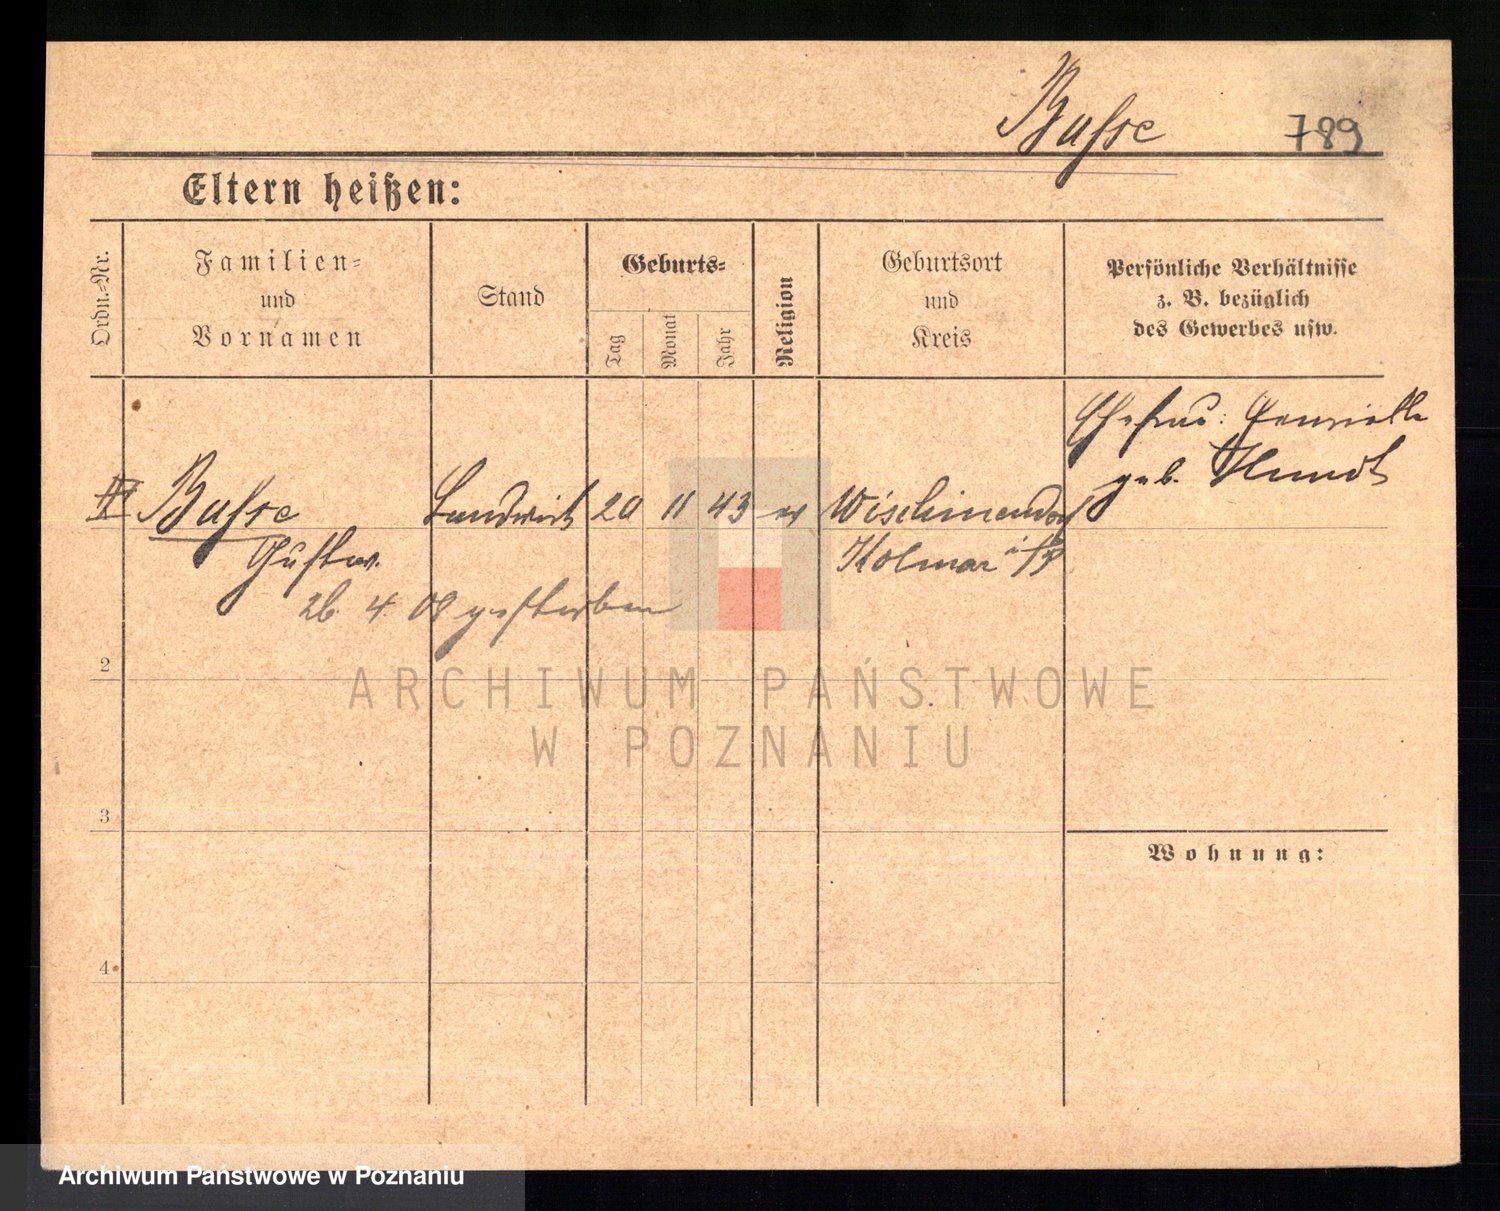 Busse
789
Eltern heißen:
Ordn.-Nr.
Familien-
und
Vornamen
Stand
Geburts-
Tag
Monat
Jahr
Religion
Geburtsort
und
Kreis
Persönliche Verhältnisse
z. B. bezüglich
des Gewerbes usw.
Ehefrau: Henriette
geb. Hundt
Busse Landwirt 20 11 43 ev
Gustav.
Kolmar i/P
26. 4. 08 gestorben
2
ARCHIWUM PAŃSTWOWE
W POZNANIU
3
Wohnung:
4
Archiwum Państwowe w Poznaniu